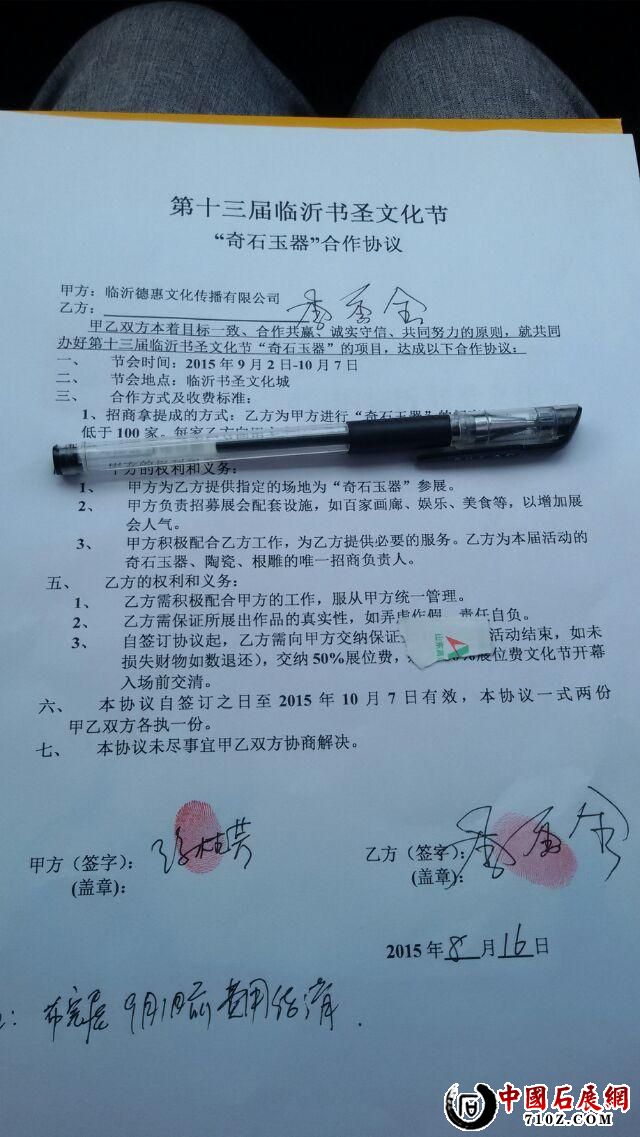 第十三届临沂书圣文化节
“奇石玉器”合作协议
甲方：临沂德惠文化传播有限公司
乙方：
甲乙双方本着目标一致、合作共赢、诚实守信、共同努力的原则，就共同
办好第十三届临沂书圣文化节“奇石玉器”的项目，达成以下合作协议：
一、 节会时间：2015年9月2日-10月7日
二、 节会地点：临沂书圣文化城
三、 合作方式及收费标准：
1、招商拿提成的方式：乙方为甲方进行“奇石玉器”的
低于100家。每家乙方向甲方
甲方的权利和义务：
1、 甲方为乙方提供指定的场地为“奇石玉器”参展。
2、 甲方负责招募展会配套设施，如百家画廊、娱乐、美食等，以增加展
会人气。
3、 甲方积极配合乙方工作，为乙方提供必要的服务。乙方为本届活动的
奇石玉器、陶瓷、根雕的唯一招商负责人。
五、 乙方的权利和义务：
1、 乙方需积极配合甲方的工作，服从甲方统一管理。
2、 乙方需保证所展出作品的真实性，如弄虚作假，责任自负。
3、 自签订协议起，乙方需向甲方交纳保证 活动结束，如未
损失财物如数退还），交纳50%展位费， 展位费文化节开幕
入场前交清。
六、 本协议自签订之日至2015年10月7日有效，本协议一式两份
甲乙双方各执一份。
七、 本协议未尽事宜甲乙双方协商解决。
甲方（签字）： 乙方（签字）：
（盖章）： （盖章）：
2015年8月16日
9月1日前 费用结清.
中國石展網
7102.COM